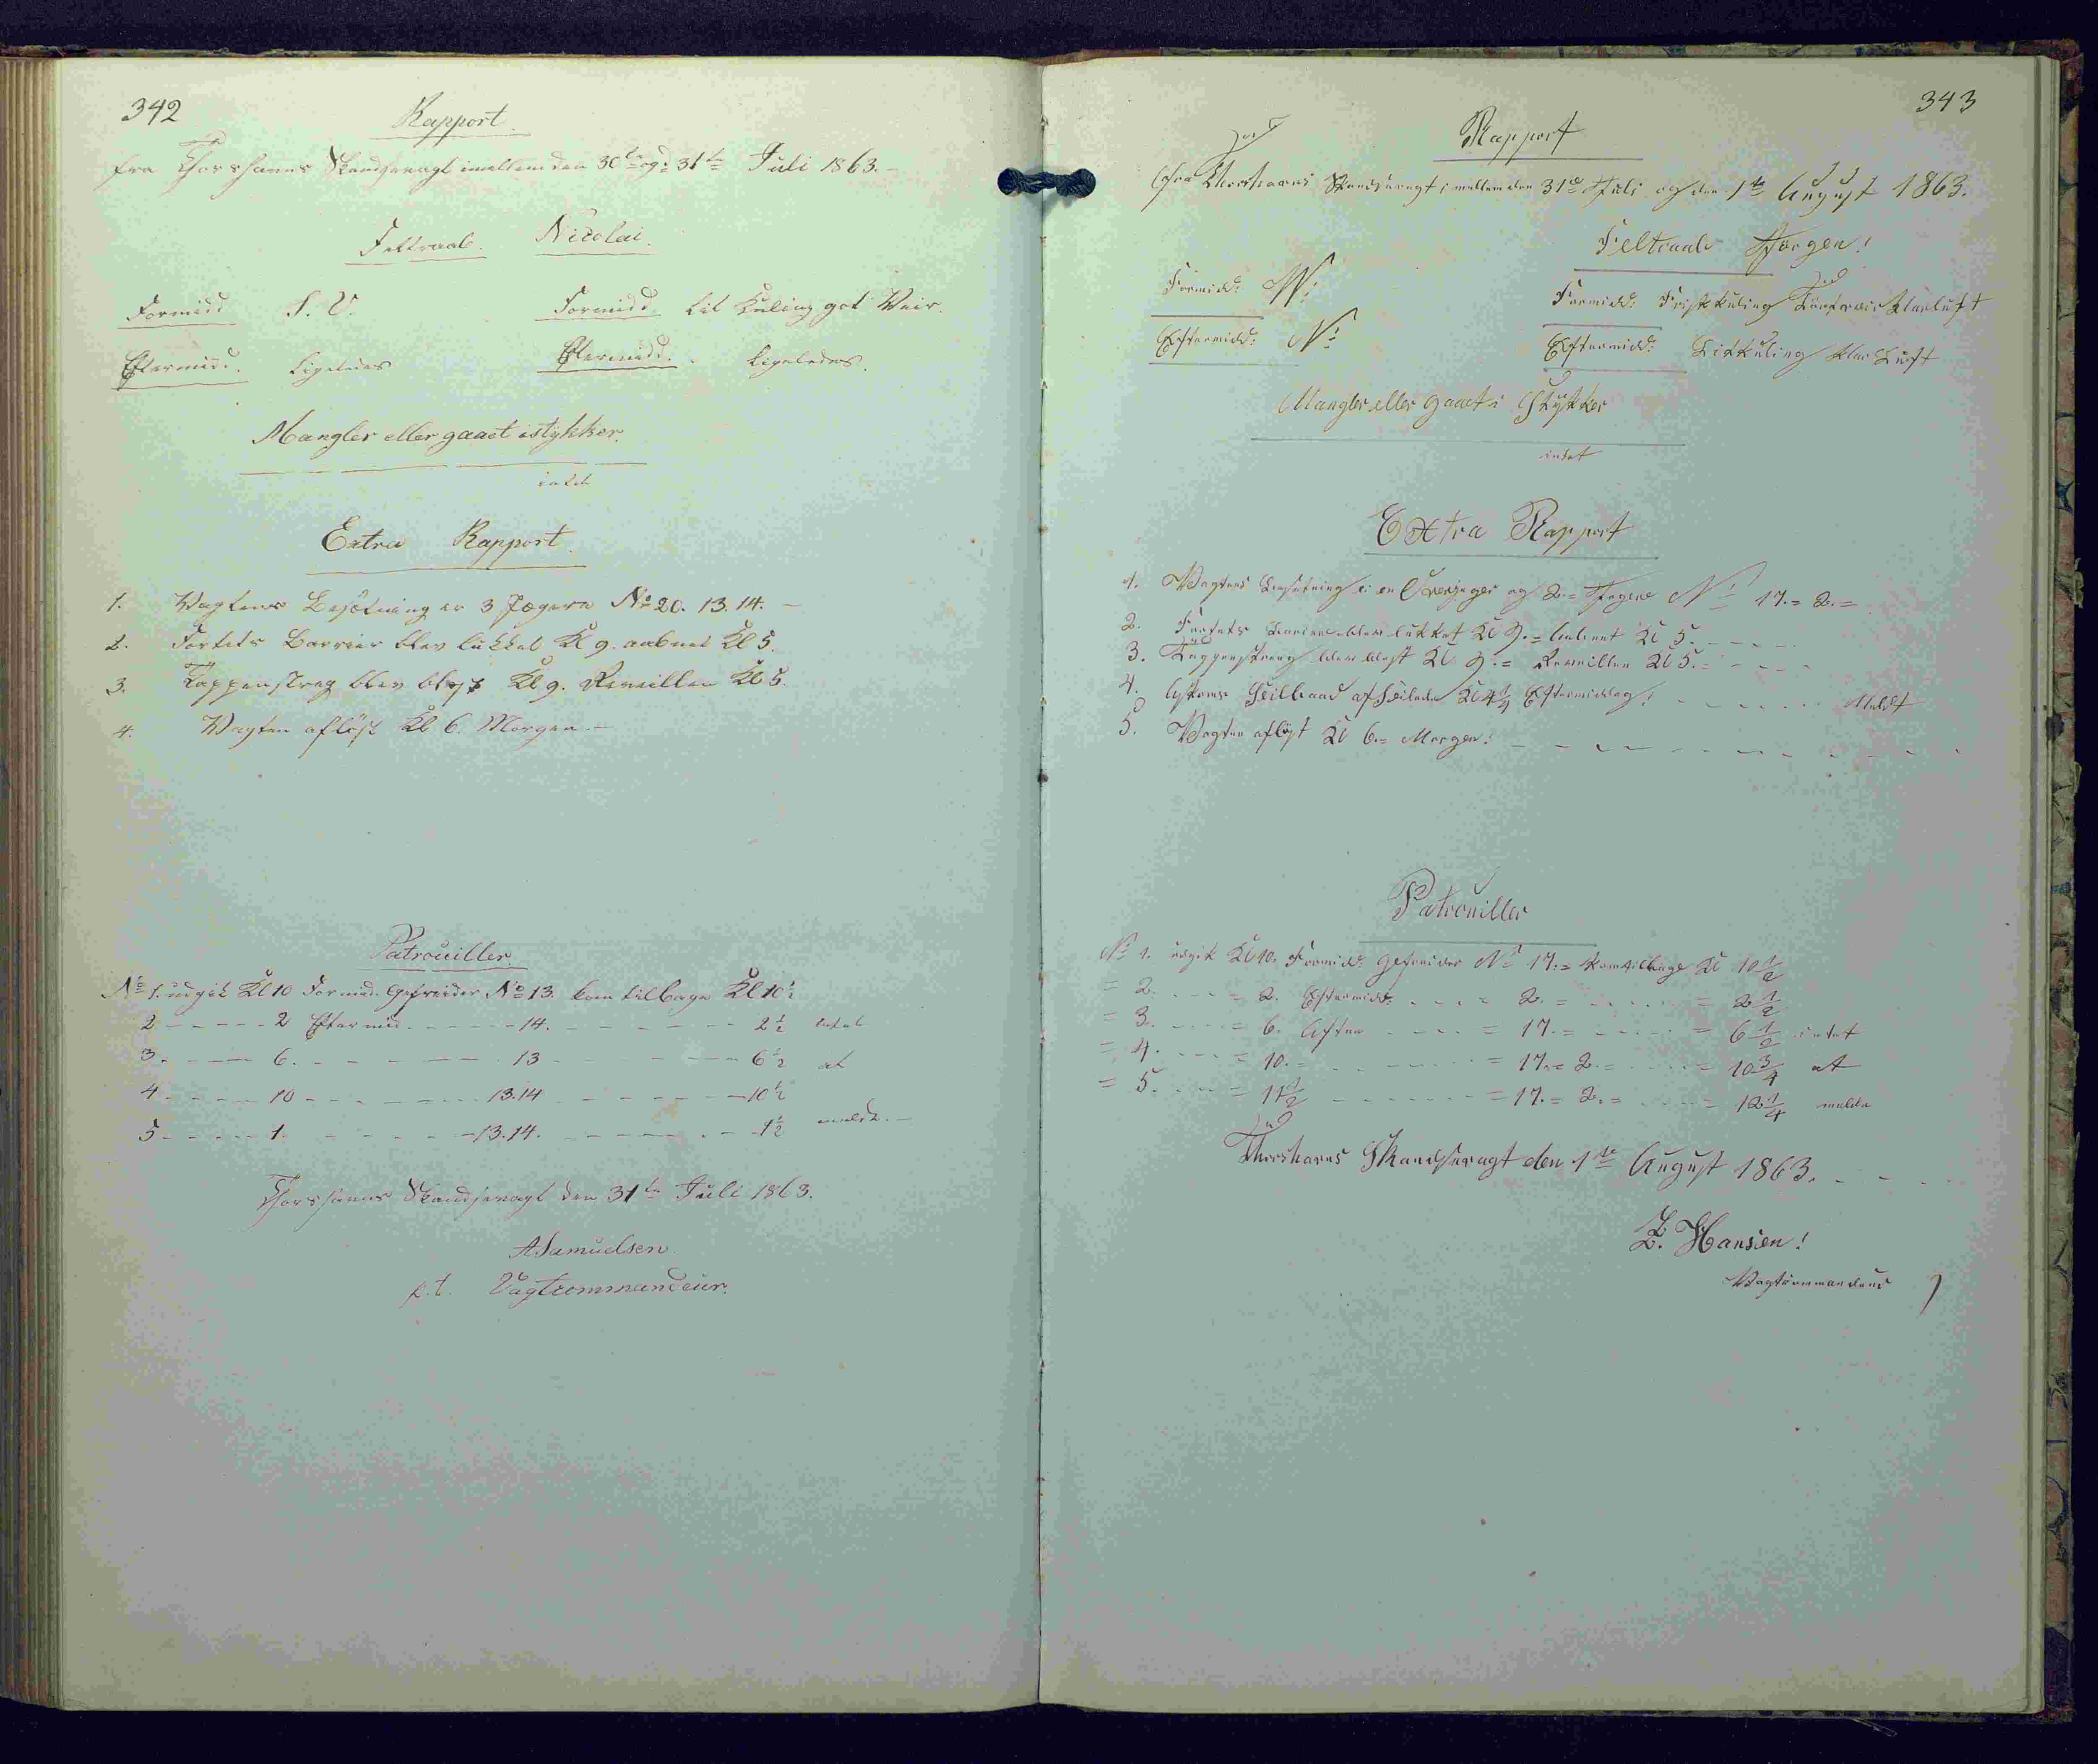 342
Rapport
fra Thorshavns Skandsevagt imellem den 30te og 31te Juli 1863.
Feltraab. Nicolai.
Formidd S. V. Formidd. Lit Kuling got Veir.
Eftermidd. Ligeledes Eftermidd. Ligeledes.
Mangler eller gaaet istykker.
intet
Extra Rapport.
1. Vagtens Besætning er 3 Jægere No 20. 13. 14. –
2. Fortets Barrier blev lukket Kl 9. aabnet Kl 5.
3. Tappenstreg blev blæst Kl 9. Reveillen Kl 5.
4. Vagten aflöst Kl 6. Morgen. –
Patrouiller.
No 1. udgik Kl 10 Formid. Gefreider No 13. kom tilbage Kl 10 1/2
2 - - - - - 2 Eftermid. - - - - - 14. - - - - - - 2 1/2 intet
3. - - - - 6. - - - - - - 13 - - - - 6 1/2 at
4 - - - - 10 - - - - - - - 13.14 - - - - - - 10 1/2
5 - - - - - 1. - - - - - 13.14. - - - - - - 1 1/2 melde. –
Thorshavns Skandsevagt den 31te Juli 1863.
A Samuelsen.
p.t. Vagtcommandeur.
343
Rapport
fra Thorshavns Skandsevagt imellem den 31te Juli og den 1te August 1863.
Feltraab Jørgen!
Formidd: W: Formidd: Friskkuling Klarluft
Eftermidd: N: Eftermidd: Litkuling klar Luft
Mangler eller gaaet i Stykker
intet
Extra Rapport
1. Vagtens Besætning er en Overjæger og 2 = Jægere No 17. = 2. =
2. Fortets Barriere blev lukket Kl 9. = aabnet Kl 5. - - - -
3. Tappenstreeg blev blæst Kl 9. = Reveillen Kl 5. = - - - -
4. Seilbaad afseilede Kl 4 1/4 Eftermiddag! - - - - - - - Meldt
5. Vagten aflöst Kl 6. = Morgen! - - - - - - - - - - -
Patrouiller
No 1. udgik Kl 10. Formid: Gefreider No 17. = kom tilbage Kl 10 1/2
= 2. - - - = 2. Eftermidd: - - - = 2. = - - - - - = 2 1/2
= 3. - - - - = 6. Aften - - - - = 17. = - - - - = 6 1/2 intet
= 4. - - - = 10. = - - - - - - = 17. = 2. = - - - - = 10 3/4 at
= 5. - - - = 11 1/2 - - - - - - - = 17. = 2. = - - - - = 12 1/4 melde
Thorshavns Skandsevagt den 1te August 1863. - - - -
Z. Hansen!
Vagtcommandeur